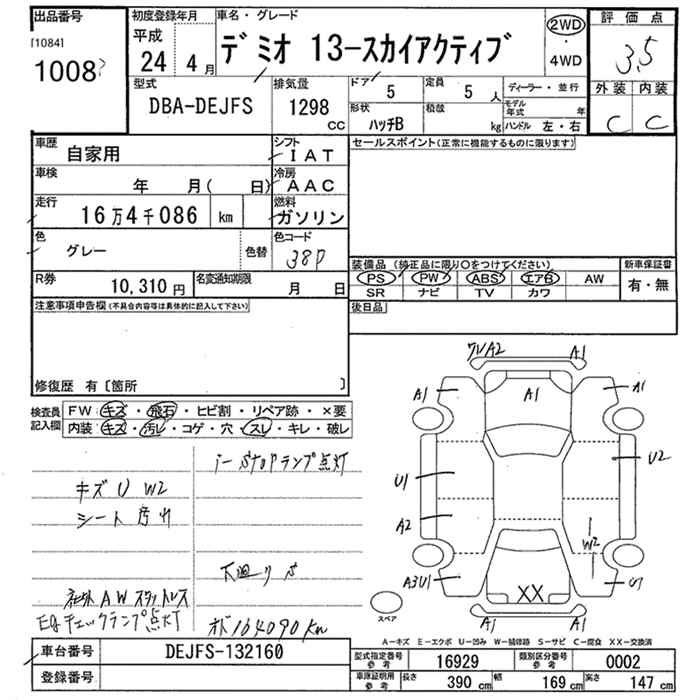 出品番号
[1084]
1008
初度登録年月
平成
24年 4月
車名・グレード
デミオ 13-スカイアクティブ
2WD
・
4WD
評価点
3.5
外装 内装
C C
型式
DBA-DEJFS
排気量
1298
CC
ドア
5
定員
5人
ディーラー・並行
形状
ハッチB
積載
kg
モデル年式
年
ハンドル 左・右
車歴
自家用
シフト
IAT
セールスポイント(正常に機能するものに限ります)
車検
年 月( 日)
冷房
AAC
走行
16万4千086 km
燃料
ガソリン
色
グレー
色替
色コード
38P
装備品 (純正品に限り○をつけてください)
新車保証書
PS PW ABS エアB AW
有・無
SR ナビ TV カワ
R券
10,310円
名変通知期限
月 日
後日品
注意事項申告欄(不具合内容等は具体的に記入して下さい)
修復歴 有〔箇所 〕
検査員記入欄
FW キズ・飛石・ヒビ割・リペア跡・×要
内装 キズ・汚レ・コゲ・穴・スレ・キレ・破レ
i-stopランプ点灯
キズU W2
シート汚れ
下廻りサ
社外AWスタットレス
Egチェックランプ点灯
オド164090km
ワレA2
A1
A1
A1
A1
U1
U2
A2
W2
A3U1
XX
U1
A1
A1
スペア
A－キズ E－エクボ U－凹み W－補修跡 S－サビ C－腐食 XX－交換済
車台番号
DEJFS-132160
登録番号
型式指定番号 参考
16929
類別区分番号 参考
0002
車庫証明用 参考
長さ 390cm
幅 169cm
高さ 147cm